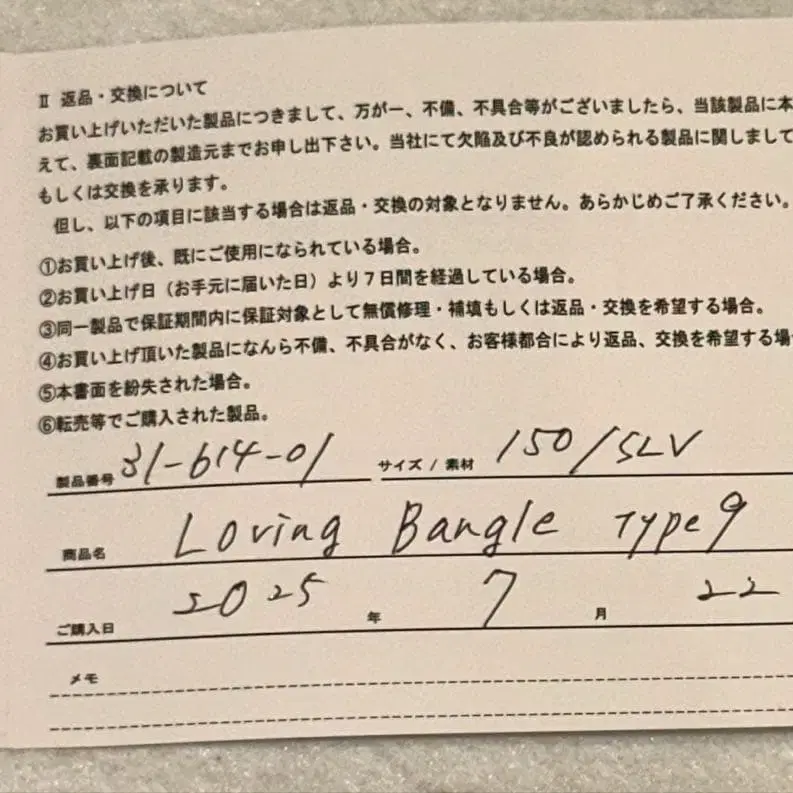 Ⅱ 返品・交換について
お買い上げいただいた製品につきまして、万が一、不備、不具合等がございましたら、当該製品に本
えて、裏面記載の製造元までお申し出下さい。当社にて欠陥及び不良が認められる製品に関しまして
もしくは交換を承ります。
但し、以下の項目に該当する場合は返品・交換の対象となりません。あらかじめご了承ください。
①お買い上げ後、既にご使用になられている場合。
②お買い上げ日（お手元に届いた日）より７日間を経過している場合。
③同一製品で保証期間内に保証対象として無償修理・補填もしくは返品・交換を希望する場合。
④お買い上げ頂いた製品になんら不備、不具合がなく、お客様都合により返品、交換を希望する場
⑤本書面を紛失された場合。
⑥転売等でご購入された製品。
製品番号 31-614-01 サイズ / 素材 150/SLV
商品名 Loving Bangle Type9
ご購入日 2025 年 7 月 22
メモ